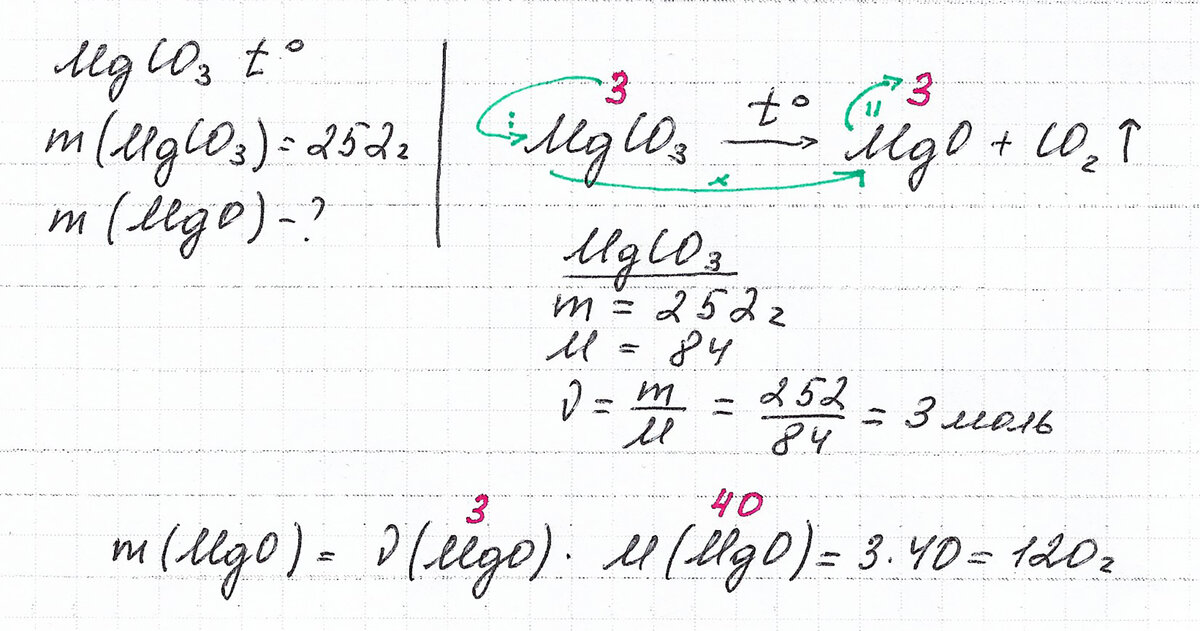 MgCO₃ t°
m(MgCO₃) = 252г
m(MgO) - ?
3 3
MgCO₃ t° → MgO + CO₂↑
: x и
MgCO₃
m = 252г
M = 84
ν = m/M = 252/84 = 3 моль
3 40
m(MgO) = ν(MgO) · M(MgO) = 3·40 = 120г